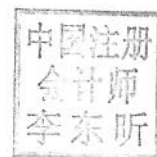 中国注册
会计师
李东昕